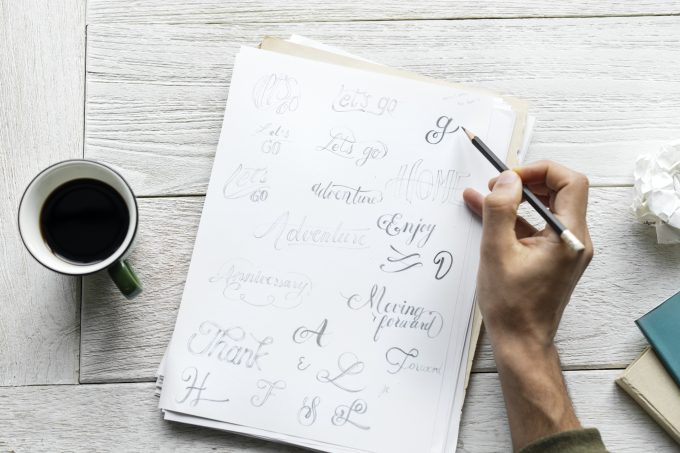 Let's go
Let's go
g
Let's
GO
Let's go
Let's
GO
adventure
HOME
Adventure
Enjoy
D
Anniversary
Moving
forward
Thank
A
&
L
T
H
F
S
L